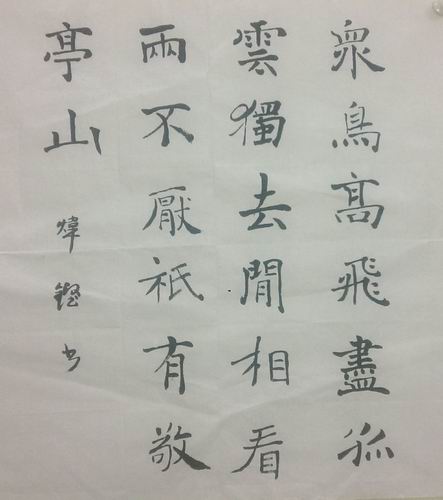 眾鳥高飛盡孤
雲獨去閒相看
兩不厭祇有敬
亭山
煒鏗書